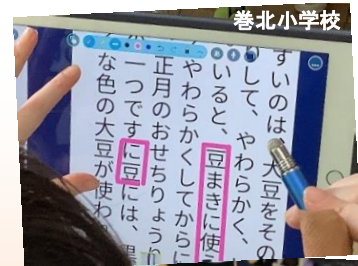 巻北小学校
すいのは、大豆をその
りして、やわらかく、
いると、豆まきに使う
やわらかくしてからに
正月のおせちりょうり
一つです。に豆には、
な色の大豆が使われ